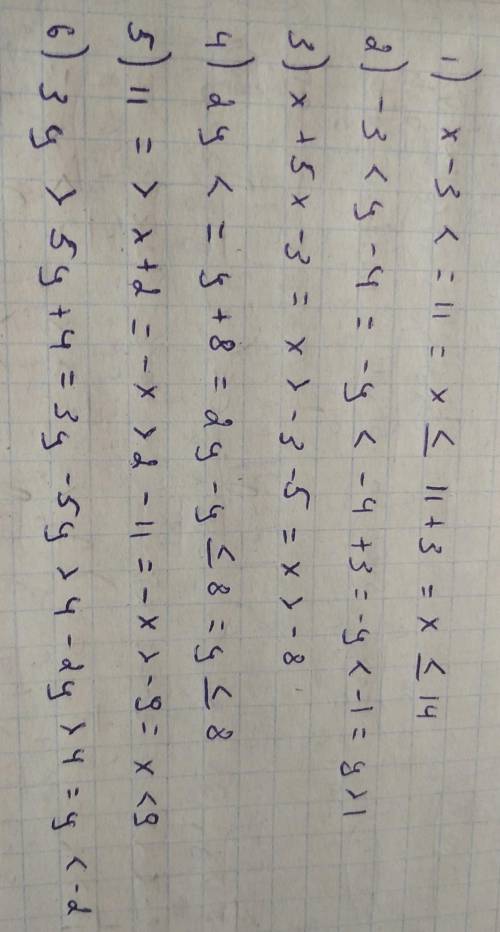 1) x - 3 < = 11 = x ≤ 11 + 3 = x ≤ 14
2) - 3 < y - 4 = - y < - 4 + 3 = - y < - 1 = y > 1
3) x + 5 x - 3 = x > - 3 - 5 = x > - 8
4) 2y < = y + 8 = 2y - y ≤ 8 = y ≤ 8
5) 11 = > x + 2 = - x > 2 - 11 = - x > - 9 = x < 9
6) 3y > 5y + 4 = 3y - 5y > 4 - 2y > 4 = y < - 2